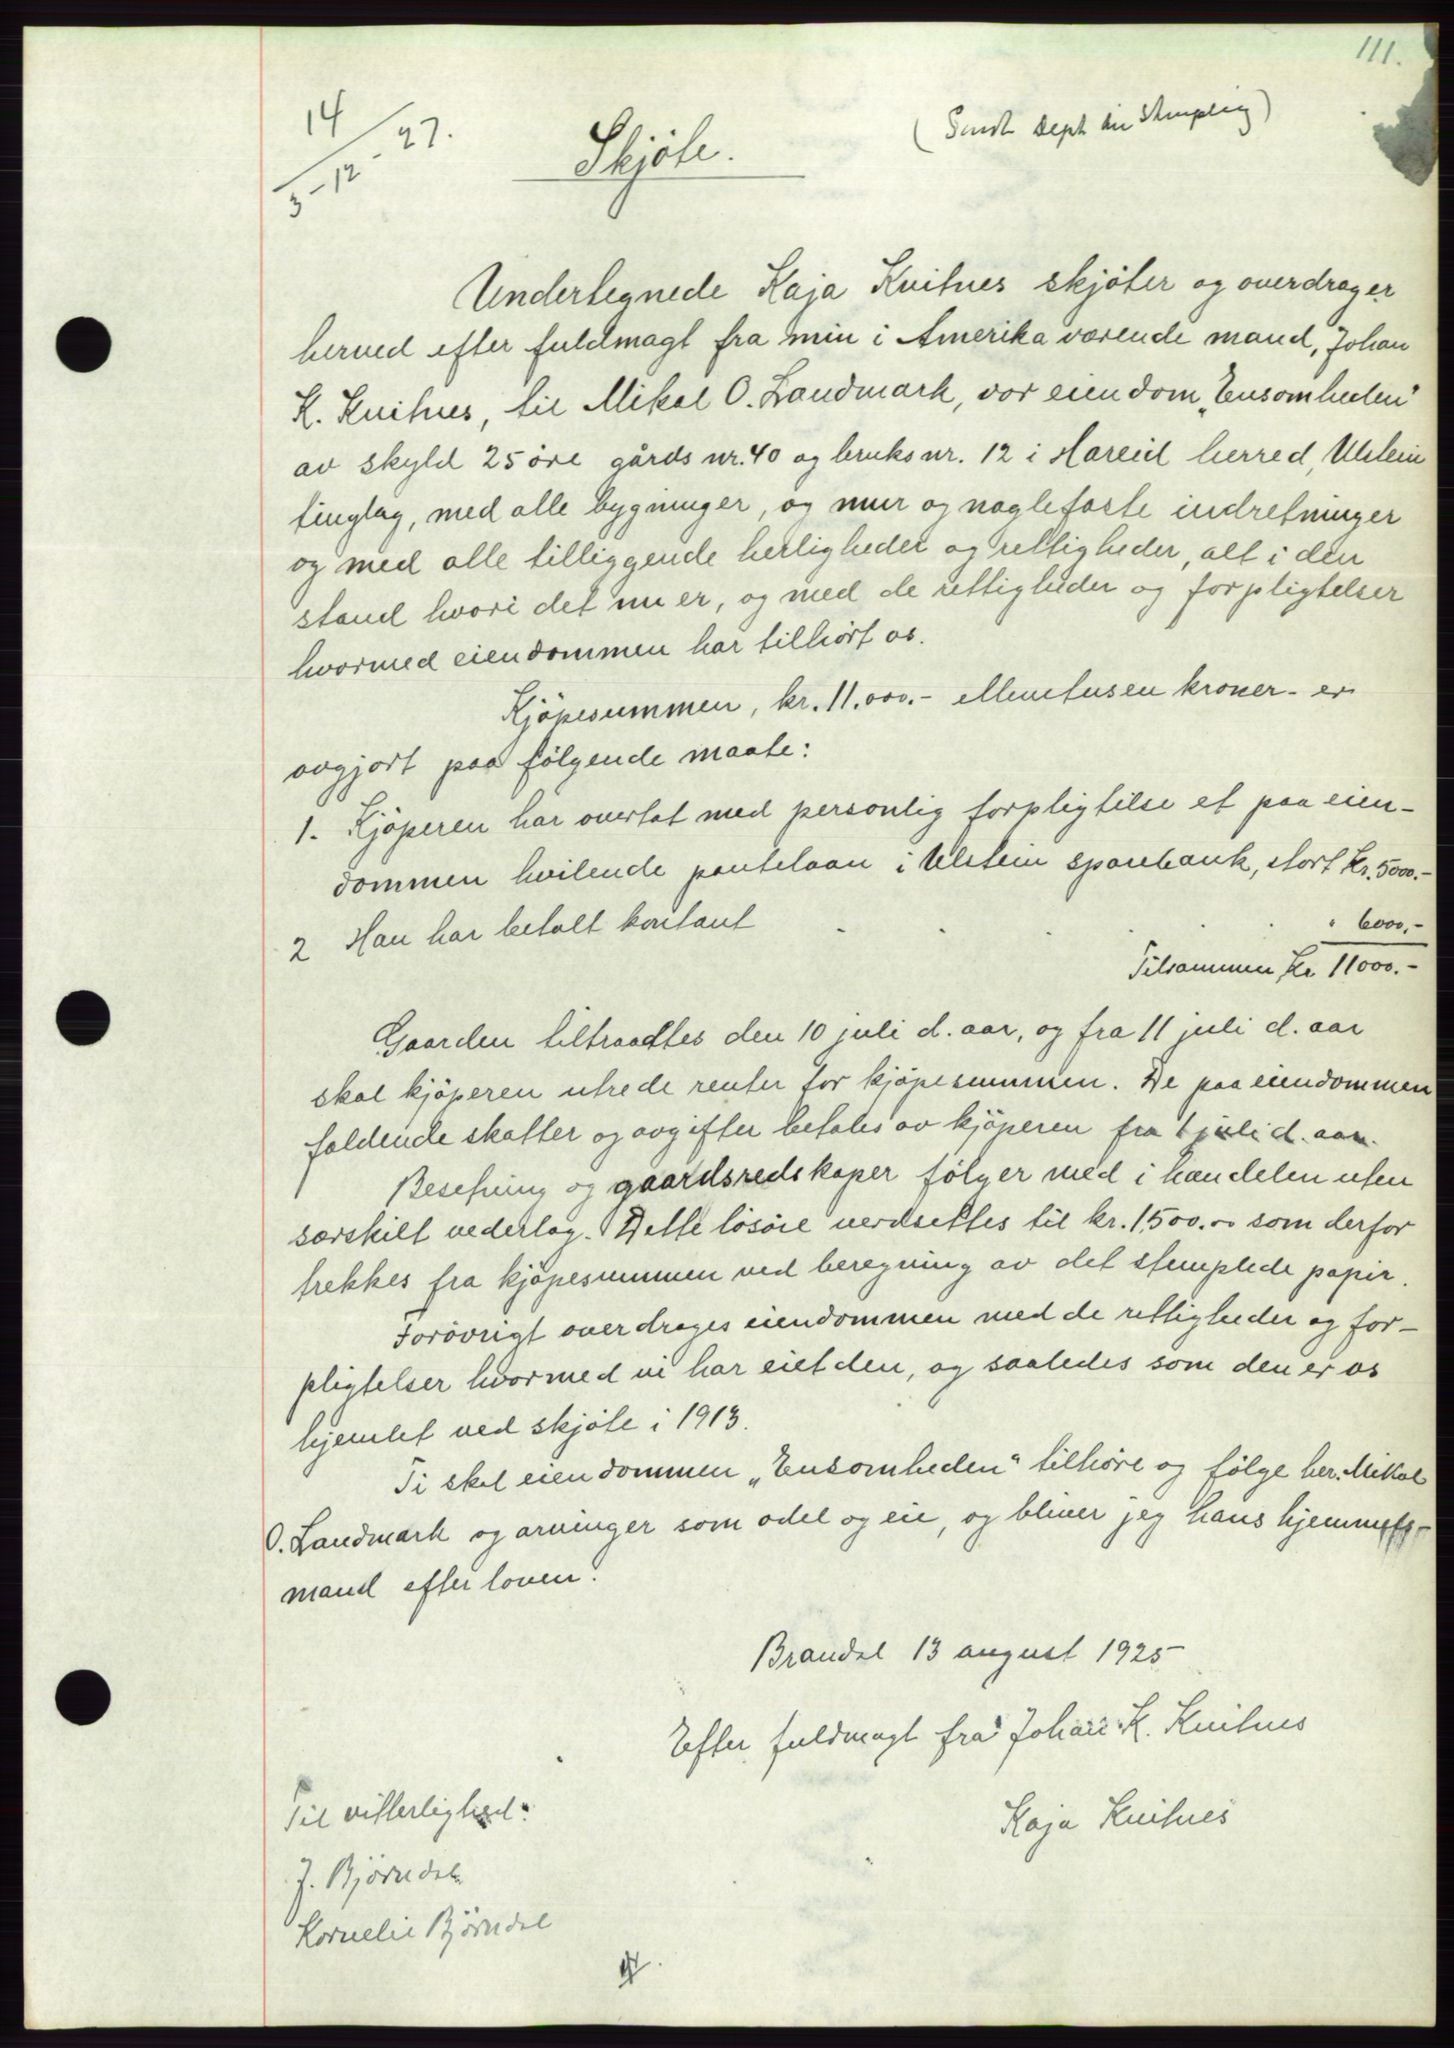 111.
14
3-12-27.
(Sendt Dept til Stempling)
Skjöte.
Undertegnede Kaja Kvitnes skjöter og overdrager
herved efter fuldmagt fra min i Amerika værende mand, Johan
K. Kvitnes, til Mikal O. Landmark, vor eiendom „Ensomheden"
av skyld 25 öre gårds nr. 40 og bruks nr. 12 i Hareid herred, Ulstein
tinglag, med alle bygninger, og mur og naglefaste indretninger
og med alle tilliggende herligheder og rettigheder, alt i den
stand hvori det nu er, og med de rettigheder og forpligtelser
hvormed eiendommen har tilhört os.
Kjöpesummen, kr. 11.000.- ellevetusen kroner - er
avgjort paa fölgende maate:
1. Kjöperen har overtat med personlig forpligtelse et paa eien-
dommen hvilende pantelaan i Ulstein sparebank, stort Kr. 5000.-
2 Han har betalt kontant . . . . . " 6000.-
Tilsammen Kr 11000.-
Gaarden tiltraadtes den 10 juli d. aar, og fra 11 juli d. aar
skal kjöperen utrede renter for kjöpesummen. De paa eiendommen
faldende skatter og avgifter betales av kjöperen fra 1 juli d. aar.
Besetning og gaardsredskaper fölger med i handelen uten
særskilt vederlag. Dette lösöre verdsettes til kr. 1500.00 som derfor
trekkes fra kjöpesummen ved beregning av det stemplede papir.
Forövrigt overdrages eiendommen med de rettigheder og for-
pligtelser hvormed vi har eiet den, og saaledes som den er os
hjemlet ved skjöte i 1913.
Ti skal eiendommen „Ensomheden" tilhöre og fölge her. Mikal
O. Landmark og arvinger som odel og eie, og bliver jeg hans hjemmels-
mand efter loven.
Brandal 13 august 1925
Efter fuldmagt fra Johan K. Kvitnes
Kaja Kvitnes
Til vitterlighed:
J. Björndal
Kornelie Björndal